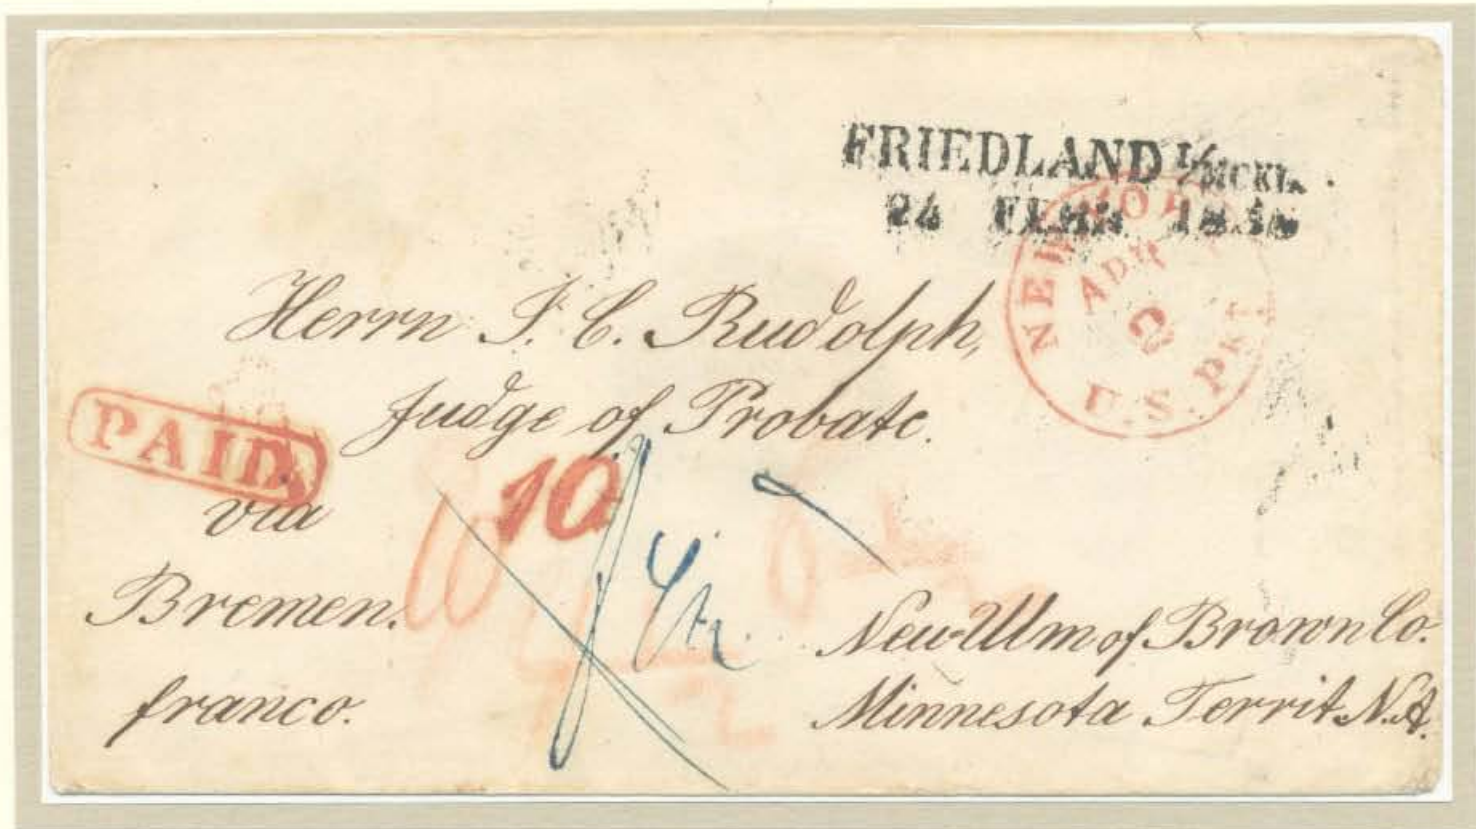 FRIEDLAND I/MCKL.
24 FEBR
NEW YORK
APR
2
U.S. PKT.
Herrn F. C. Rudolph,
Judge of Probate.
PAID
via
10
Bremen.
franco.
New-Ulm of Brown Co.
Minnesota Territ. N.A.